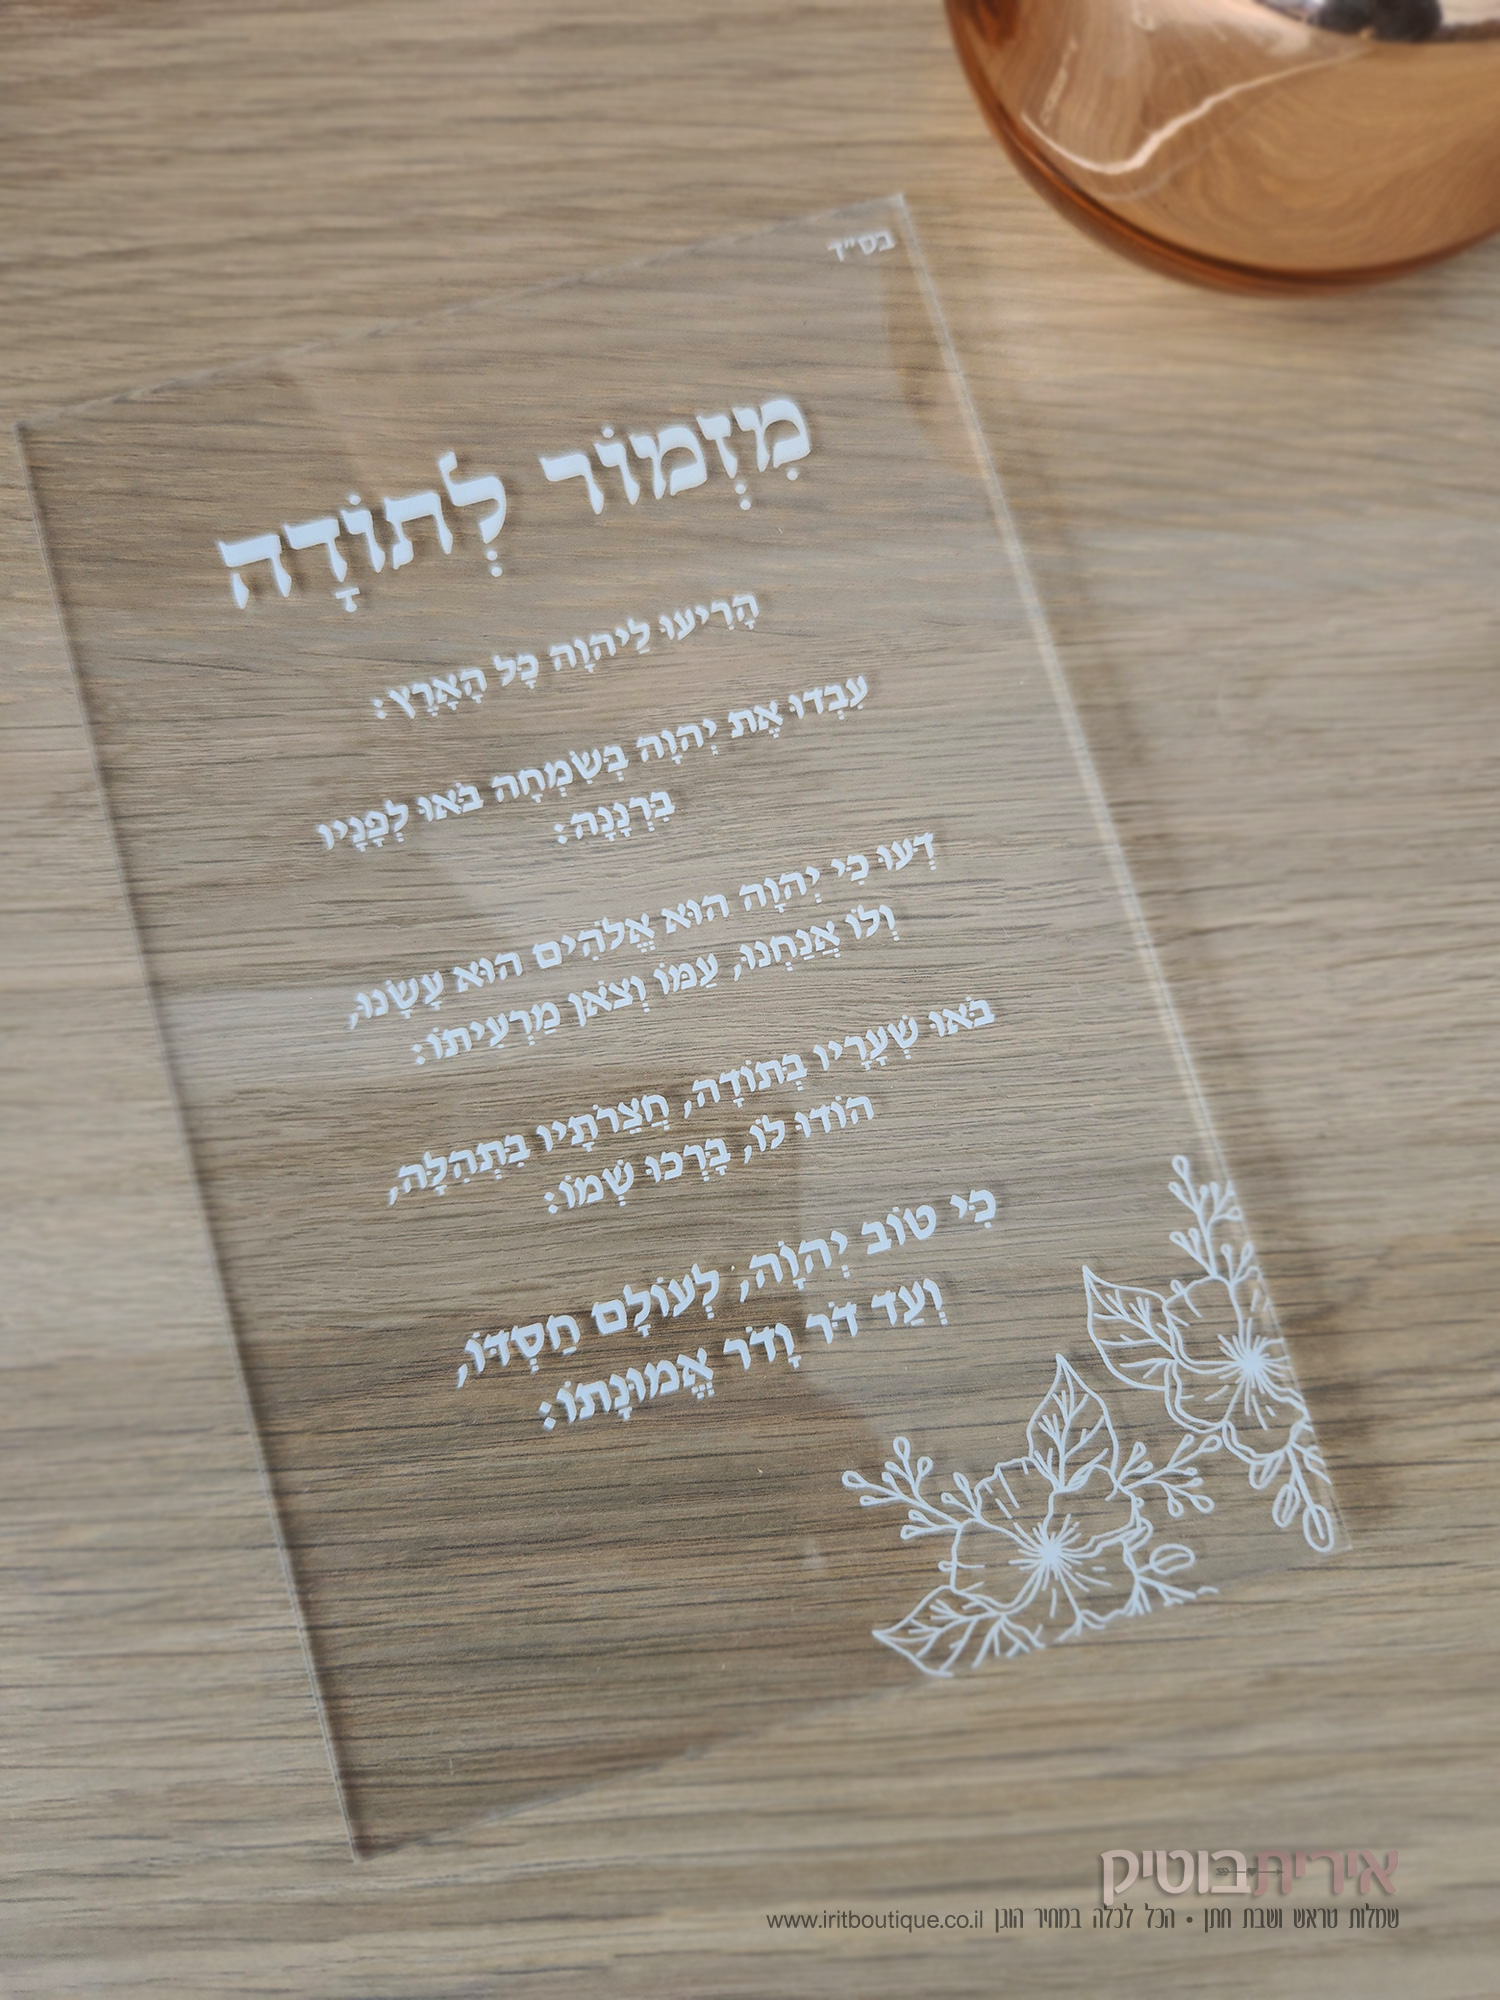 בס״ד
מִזְמוֹר לְתוֹדָה
הָרִיעוּ לַיהוָה כָּל הָאָרֶץ:
עִבְדוּ אֶת יְהוָה בְּשִׂמְחָה בֹּאוּ לְפָנָיו
בִּרְנָנָה:
דְּעוּ כִּי יְהוָה הוּא אֱלֹהִים הוּא עָשָׂנוּ,
וְלוֹ אֲנַחְנוּ, עַמּוֹ וְצֹאן מַרְעִיתוֹ:
בֹּאוּ שְׁעָרָיו בְּתוֹדָה, חֲצֵרֹתָיו בִּתְהִלָּה,
הוֹדוּ לוֹ, בָּרְכוּ שְׁמוֹ:
כִּי טוֹב יְהוָה, לְעוֹלָם חַסְדּוֹ,
וְעַד דֹּר וָדֹר אֱמוּנָתוֹ:
איריתבוטיק
שמלות טראש ושבת חתן • הכל לכלה במחיר הוגן www.iritboutique.co.il